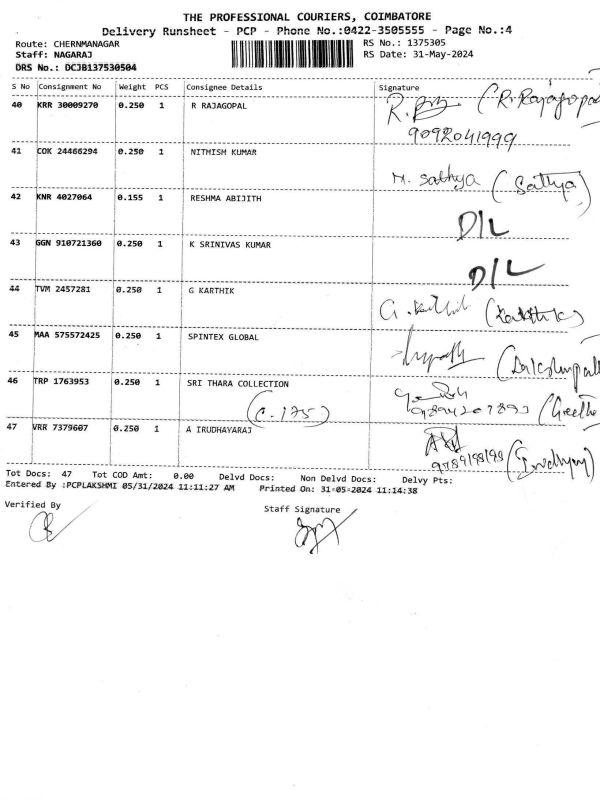 THE PROFESSIONAL COURIERS, COIMBATORE
Delivery Runsheet - PCP - Phone No.:0422-3505555 - Page No.:4
Route: CHERNMANAGAR
Staff: NAGARAJ
DRS No.: DCJB137530504
RS No.: 1375305
RS Date: 31-May-2024
S No Consignment No Weight PCS Consignee Details Signature
40 KRR 30009270 0.250 1 R RAJAGOPAL (R.Rajagopal
9092041999
41 COK 24466294 0.250 1 NITHISH KUMAR
M. Sathya (Sathya)
42 KNR 4027064 0.155 1 RESHMA ABIJITH
D/L
43 GGN 910721360 0.250 1 K SRINIVAS KUMAR
D/L
44 TVM 2457281 0.250 1 G KARTHIK
G. Karthik (Karthik)
45 MAA 575572425 0.250 1 SPINTEX GLOBAL
46 TRP 1763953 0.250 1 SRI THARA COLLECTION
(C.175) (Geetha
47 VRR 7379607 0.250 1 A IRUDHAYARAJ
Tot Docs: 47 Tot COD Amt: 0.00 Delvd Docs: Non Delvd Docs: Delvy Pts:
Entered By :PCPLAKSHMI 05/31/2024 11:11:27 AM Printed On: 31-05-2024 11:14:38
Verified By
Staff Signature